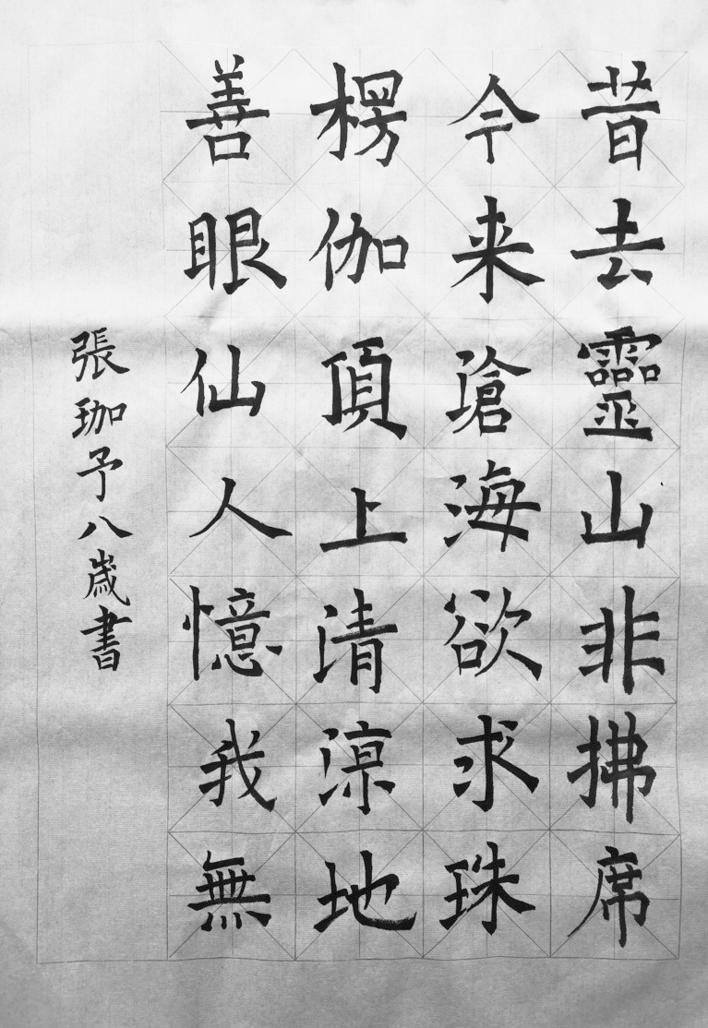 昔去靈山非拂席
今来滄海欲求珠
楞伽頂上清涼地
善眼仙人憶我無
張珈予八歲書